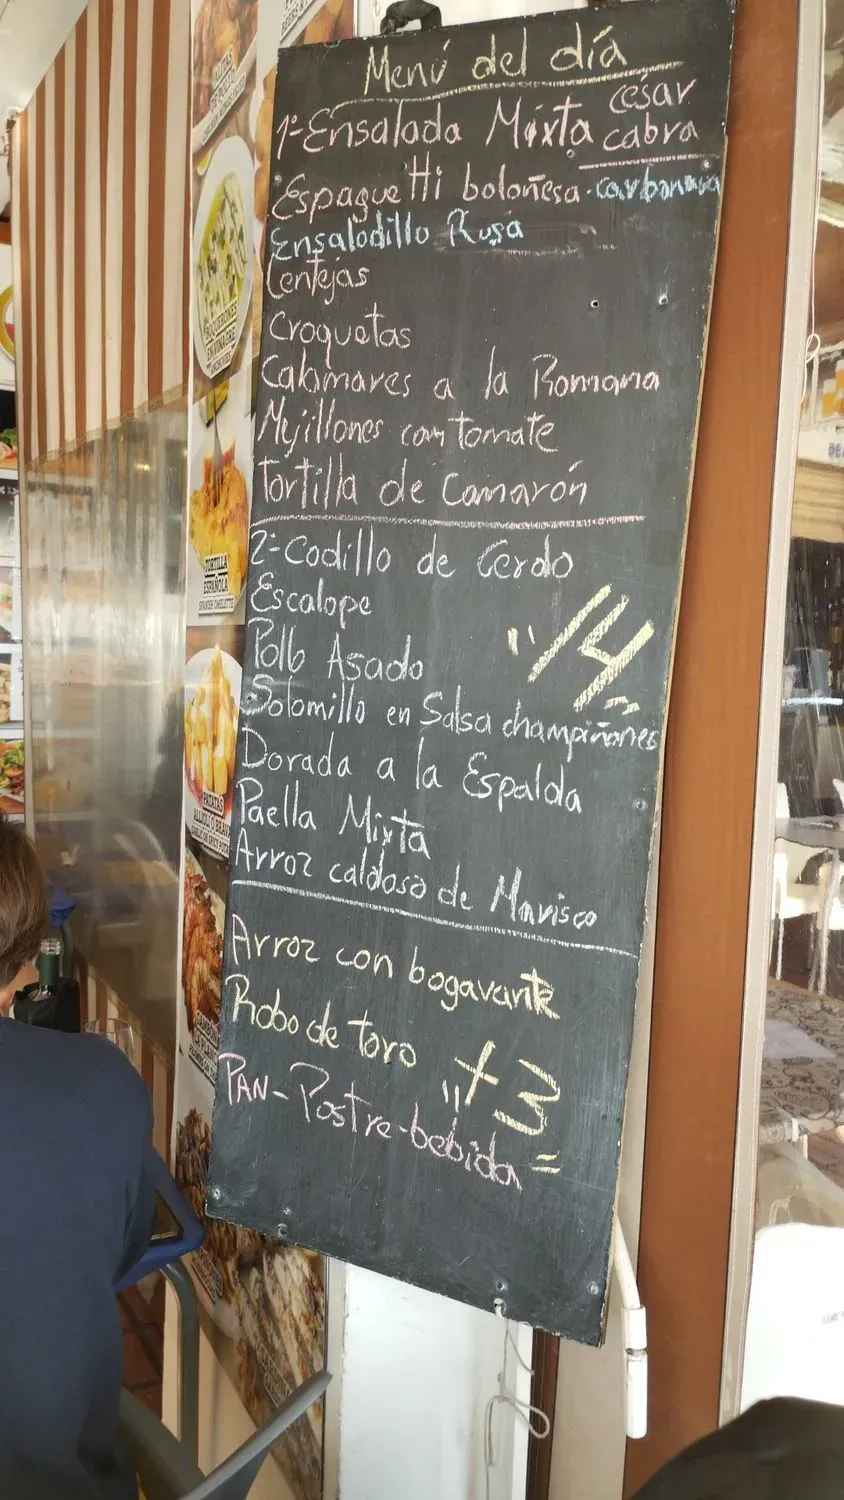 Menú del día
1º-Ensalada Mixta césar
cabra
Espaguetti boloñesa-carbonara
Ensalodillo Rusa
Lentejas
Croquetas
Calamares a la Romana
Mejillones con tomate
Tortilla de Camarón
2º-Codillo de Cerdo
Escalope
"14"
Pollo Asado
Solomillo en Salsa champiñones
Dorada a la Espalda
Paella Mixta
Arroz caldoso de Marisco
Arroz con bogavante
Rabo de toro "+3"
PAN-Postre-bebida
BOQUERONES
EN VINAGRE
TORTILLA
ESPAÑOLA
SPANISH OMELETTE
PATATAS
ALLIOLI O BRAVA